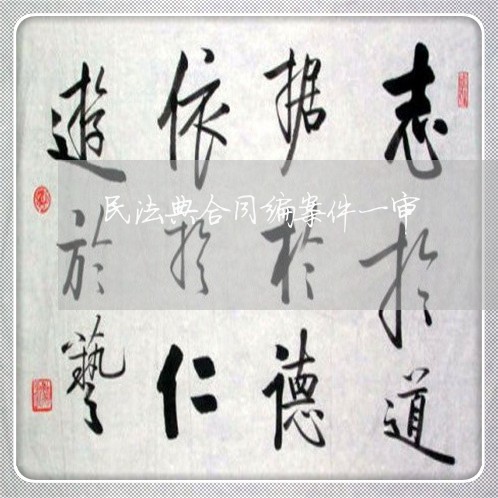 志於道
据於德
依於仁
遊於藝
民法典合同编案件一审